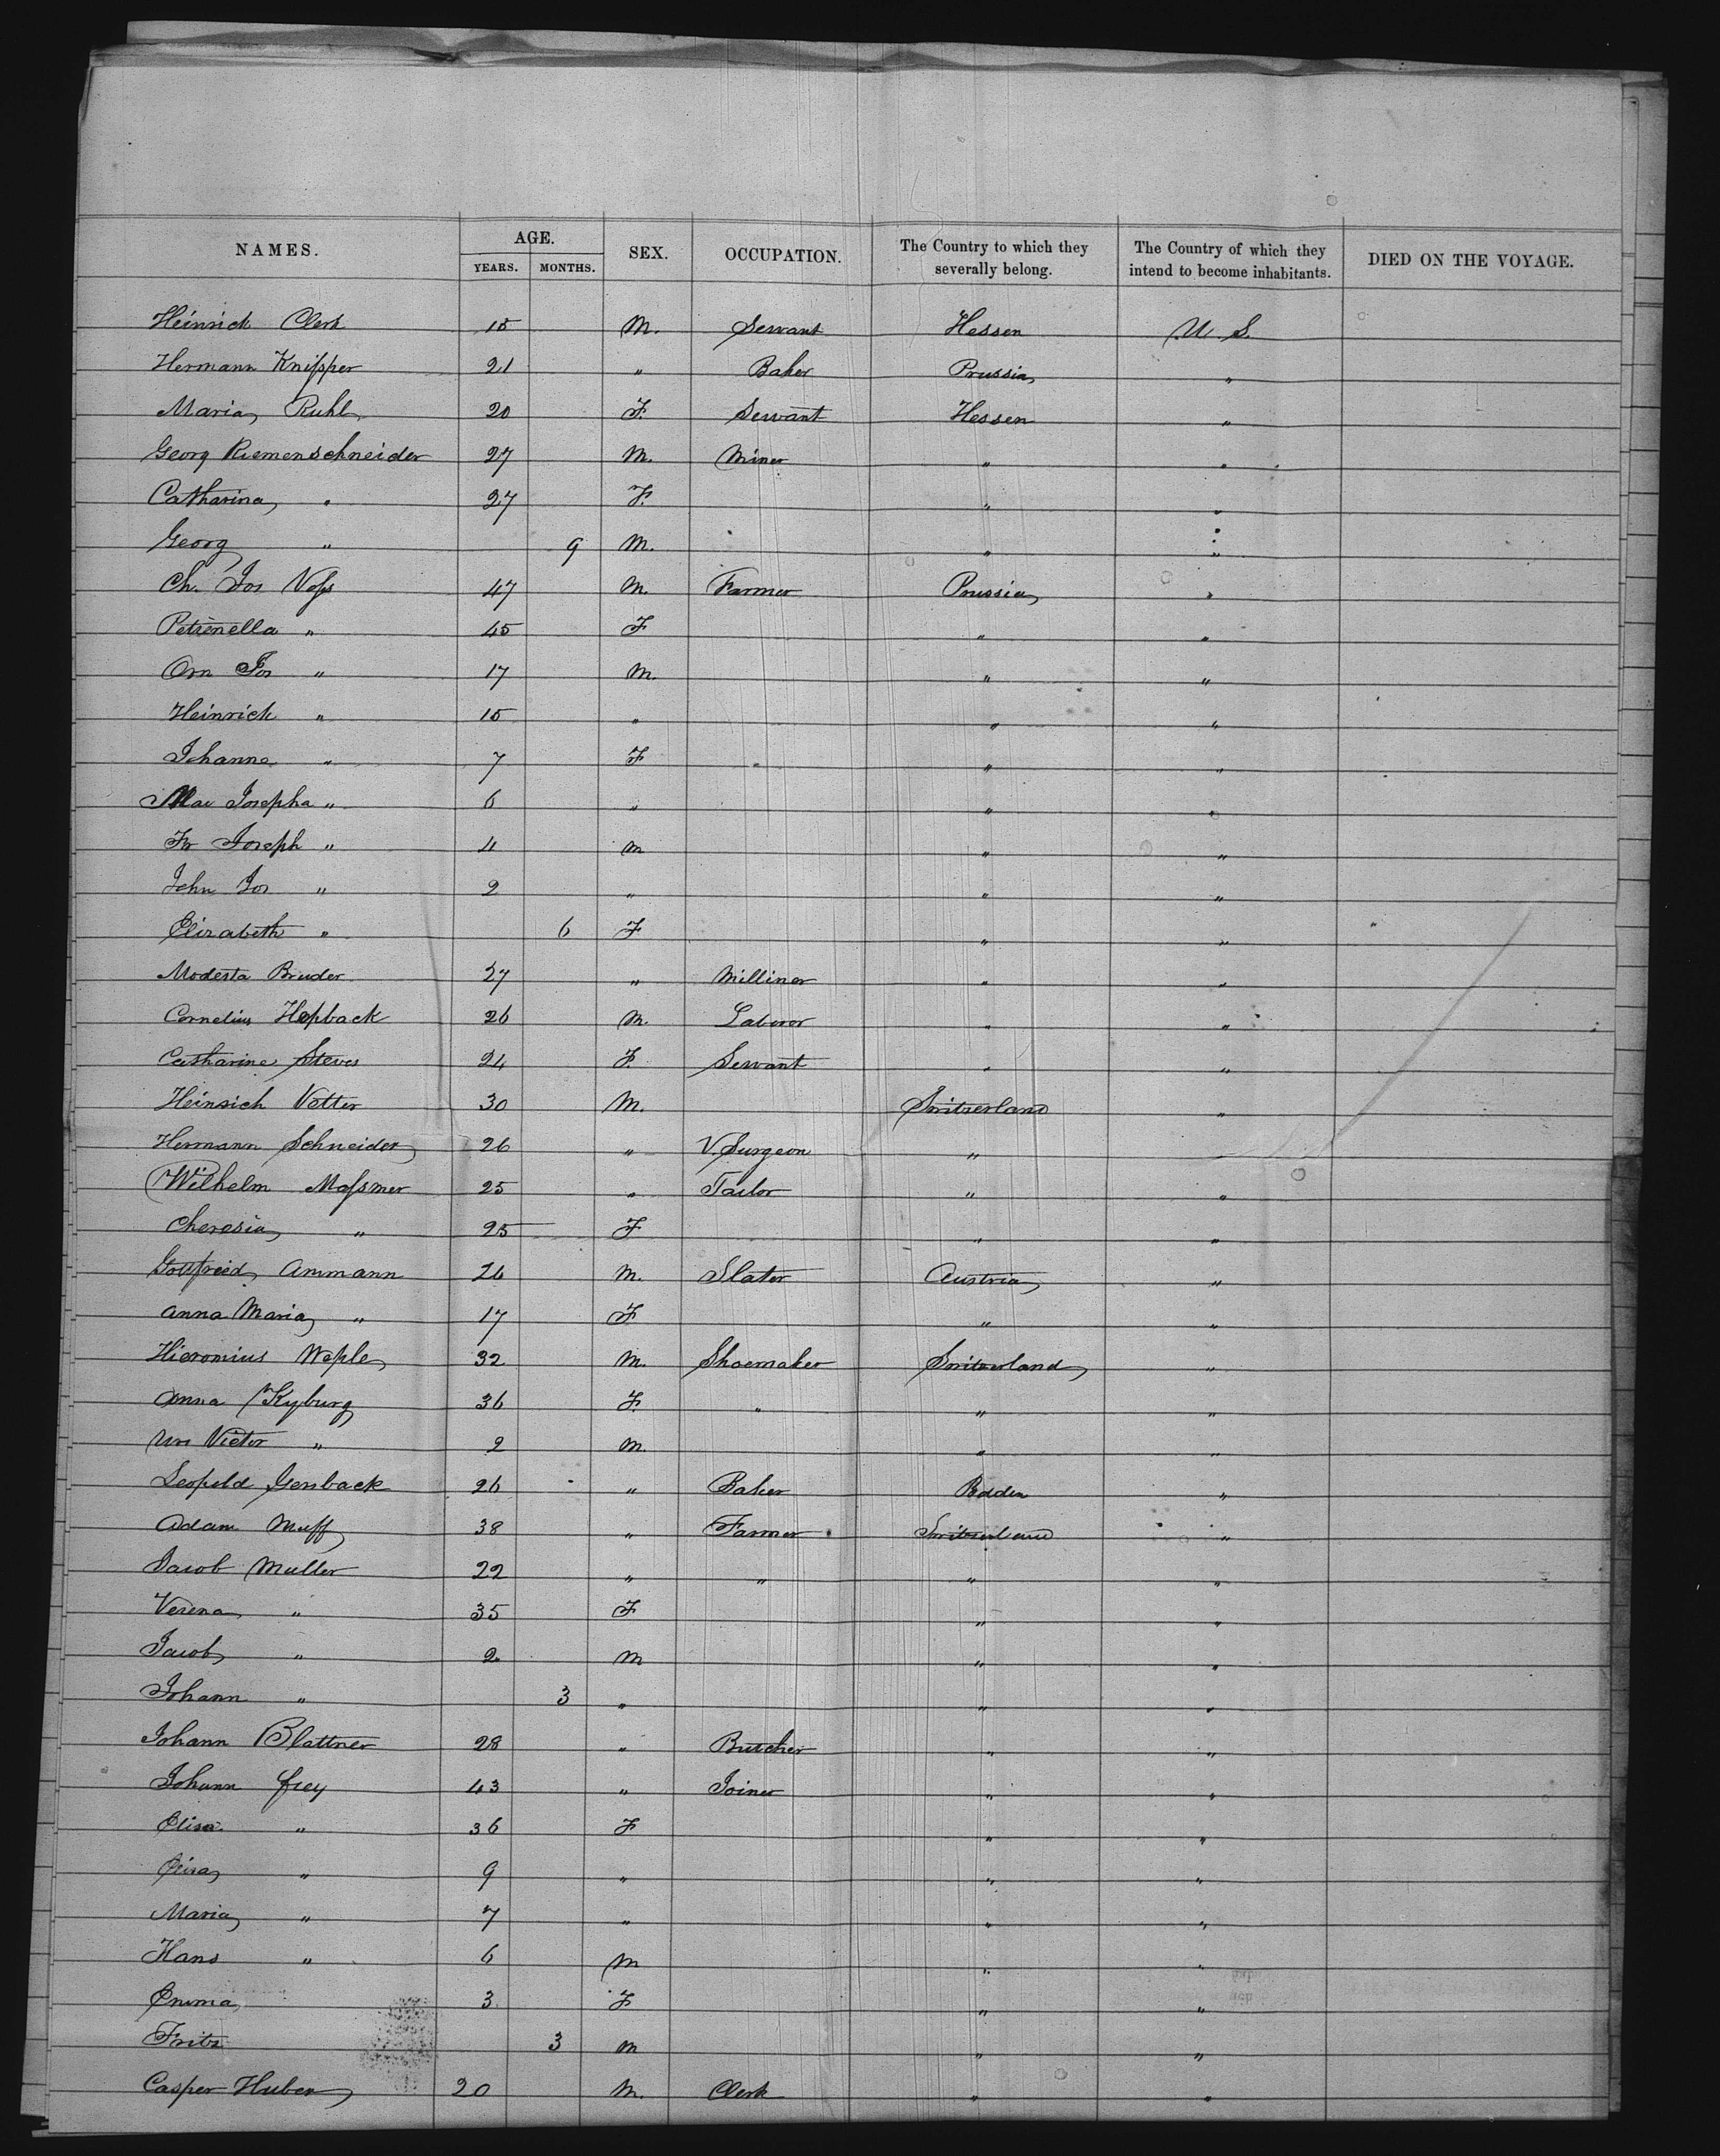 NAMES. AGE. YEARS. MONTHS. SEX. OCCUPATION. The Country to which they severally belong. The Country of which they intend to become inhabitants. DIED ON THE VOYAGE.
Heinrich Clerk 15 M. Servant Hessen U. S.
Hermann Knipper 21 " Baker Prussia "
Maria Ruhl 20 F. Servant Hessen "
Georg Riemenschneider 27 M. Miner " "
Catharina " 27 F. " "
Georg " 9 M. " "
Ch. Jos Voss 47 M. Farmer Prussia "
Petrenella " 45 F " "
Jos " 17 M. " "
Heinrich " 15 " " "
Johanna " 7 F " " "
Mar Josepha " 6 " " "
Fr Joseph " 4 M " "
John Jos " 2 " " "
Elizabeth " 6 F " "
Modesta Bruder 27 " Milliner " "
Cornelius 26 M. Laboror " "
Catharine Steves 24 F. Servant " "
Heinrich Vetter 30 M. Switzerland "
Hermann Schneider 26 " V. Surgeon " "
Wilhelm Massmer 25 " Tailor " "
Theresia " 25 F " "
Gottfried Ammann 26 M. Slater Austria "
Anna Maria " 17 F " "
Hieronimus 32 M. Shoemaker Switzerland "
Anna Kyburg 36 F. " " "
Urs Victor " 2 M. " "
Leopold Gersback 26 " Baker Baden "
Adam Muff 38 " Farmer Switzerland "
Jacob Muller 22 " " " "
Verena " 35 F " "
Jacob " 2 M " "
Johann " 3 " " "
Johann Blattner 28 " Butcher " "
Johann Frey 43 " Joiner " "
Elisa " 36 F " "
Elisa " 9 " " "
Maria " 7 " " "
Hans " 6 M " "
Emma 3 F " "
Fritz 3 M " "
Casper Huber 20 M. Clerk " "